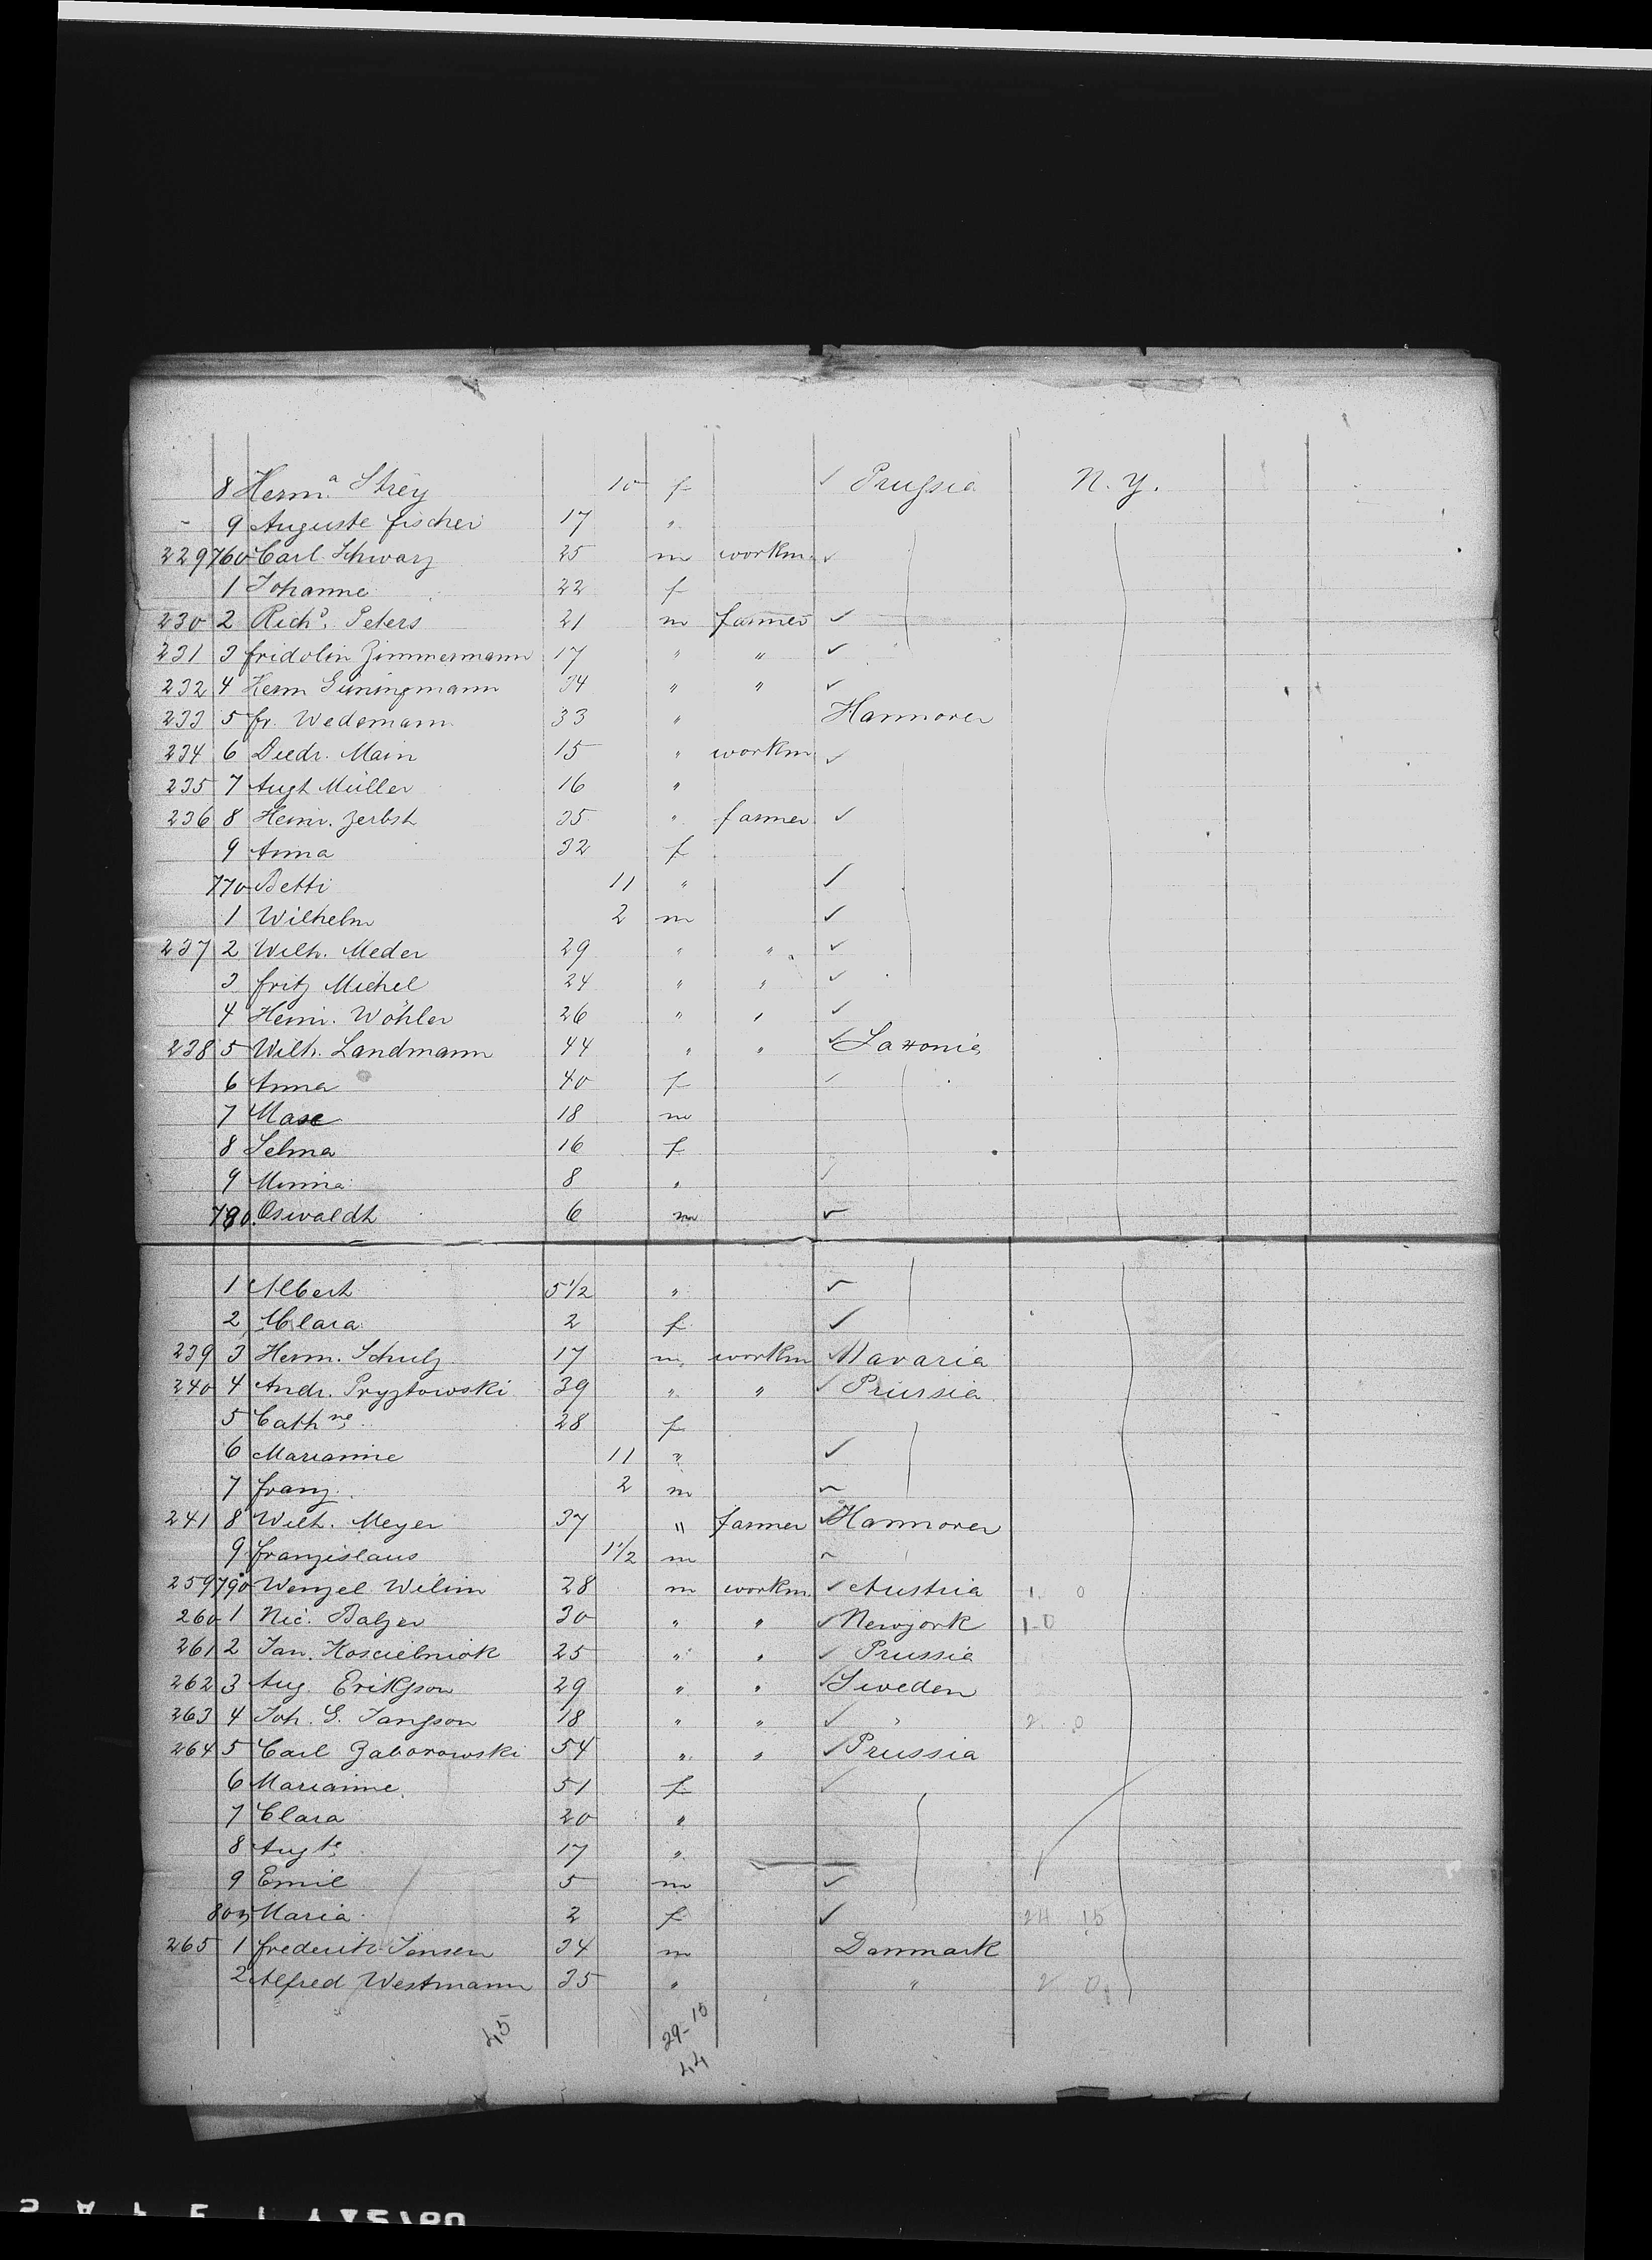 8 Herm.a Strey 10 f ✓ Prussia N. Y.
- 9 Auguste fischer 17 "
229 760 Carl Schwarz 25 m workm. ✓
1 Johanne 22 f
230 2 Richd. Peters 21 m farmer ✓
231 3 fridolin Zimmermann 17 " " ✓
232 4 Herm 34 " " ✓
233 5 fr. Wedemam 33 " Hannover
234 6 Diedr. Main 15 " workm ✓
235 7 Augt Müller 16 "
236 8 Heinr. Zerbst 35 " farmer ✓
9 Anna 32 f
770 Betti 11 " ✓
1 Wilhelm 2 m ✓
237 2 Wilh. Meder 29 " " ✓
3 fritz Michel 24 " " ✓
4 Heinr. Wöhler 26 " " ✓
238 5 Wilh. Landmann 44 " " ✓ Saxonia
6 Anna 40 f ✓
7 Max 18 m
8 Selma 16 f
9 Minna 8 " ✓
780. Oswaldt 6 m ✓
1 Albert 5 1/2 " ✓
2 Clara 2 f ✓
239 3 Herm. Schulz 17 m workm ✓ Bavaria
240 4 Andr. Pryztowski 39 " " ✓ Prussia
5 Cathne 28 f
6 Marianne 11 " ✓
7 franz 2 m ✓
241 8 Wilh. Meyer 37 " farmer ✓ Hannover
9 franzislaus 1 1/2 m ✓
259 790 Wenzel Wilim 28 m workm. ✓ Austria 1. 0
260 1 Nic. Balzer 30 " " ✓ Newjork 1-0
261 2 Jan. Koscielniak 25 " " ✓ Prussia
262 3 Aug. Erikson 29 " " ✓ Sweden
263 4 Joh. G. Jansson 18 " " ✓ " 2 0
264 5 Carl Zaborowski 54 " " ✓ Prussia
6 Marianne 51 f ✓
7 Clara 20 "
8 Augte 17 "
9 Emil 5 m ✓
800 Maria 2 f ✓ 24 15
265 1 frederik Jensen 34 m Danmark
2 Alfred Westmann 35 " " 2 0
45 29-15
44